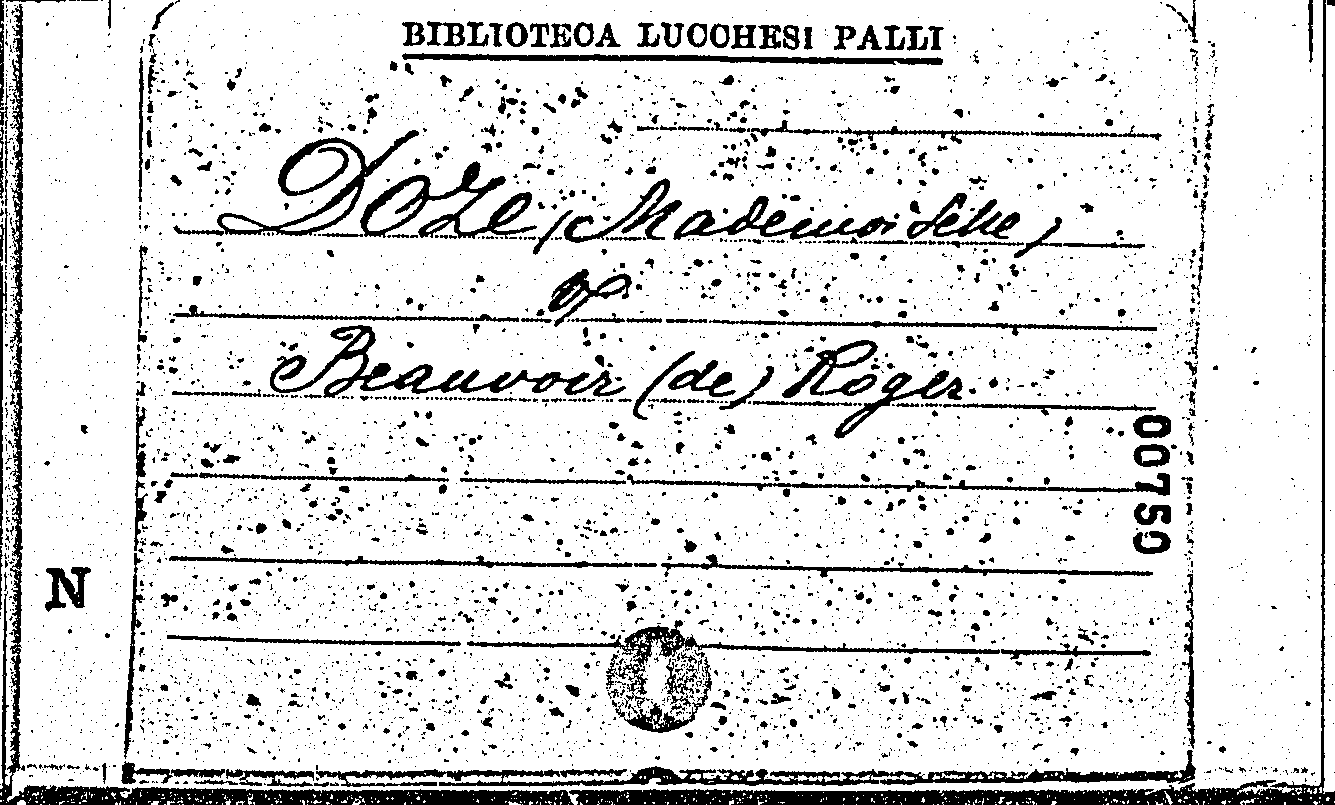 BIBLIOTECA LUCCHESI PALLI
Doze (Mademoiselle)
Beauvoir (de) Roger
00750
N